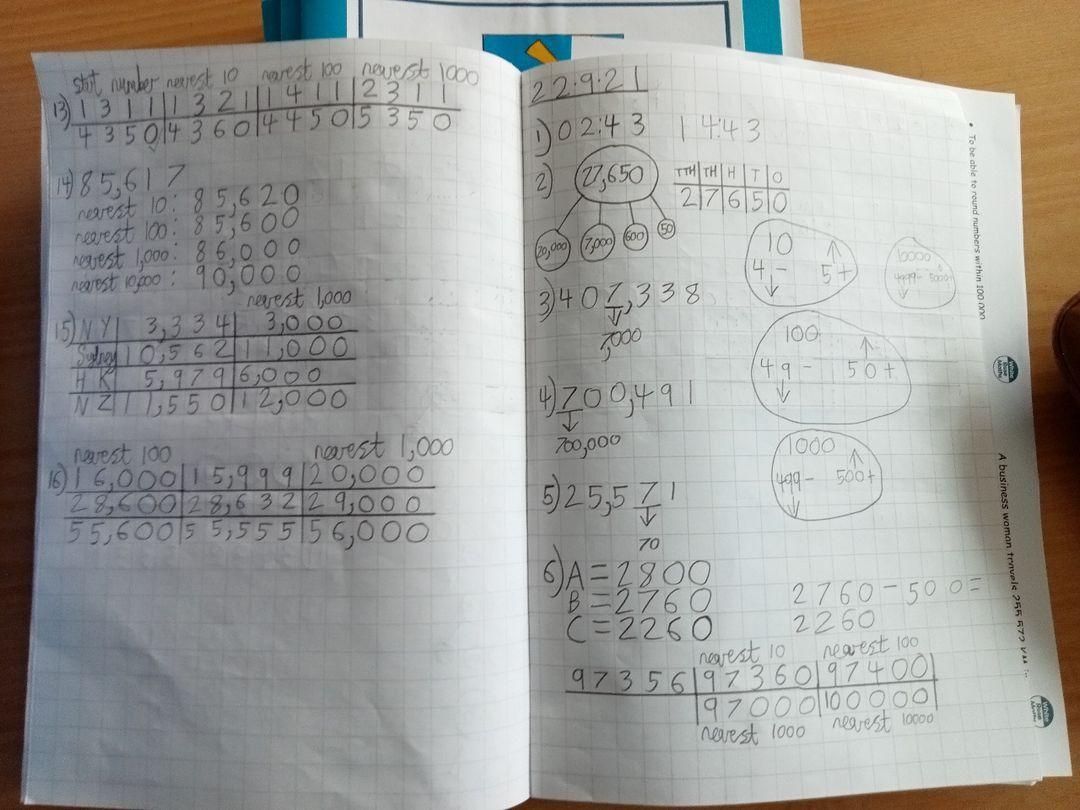 start number nearest 10 nearest 100 nearest 1000
13) 1311 1321 1411 2311
4350 4360 4450 5350
14) 85,617
nearest 10: 85,620
nearest 100: 85,600
nearest 1,000: 86,000
nearest 10,000: 90,000
nearest 1,000
15) NY 3,334 3,000
Sydney 10,562 11,000
HK 5,979 6,000
NZ 11,550 12,000
nearest 100 nearest 1,000
16) 16,000 15,999 20,000
28,600 28,632 29,000
55,600 55,555 56,000
22:9:21
1) 02:43 14:43
2) 27,650
20,000 7,000 600 50
TTH TH H T O
2 7 6 5 0
10
4- 5+
10000
4999- 5000+
3) 407,338
7,000
100
49- 50+
4) 700,491
700,000
1000
499- 500+
5) 25,571
70
6) A=2800
B=2760
C=2260
2760-500=
2260
nearest 10 nearest 100
97356 97360 97400
97000 100000
nearest 1000 nearest 10000
• To be able to round numbers within 100 000
White Rose Maths
A business woman travels 255,572
White Rose Maths